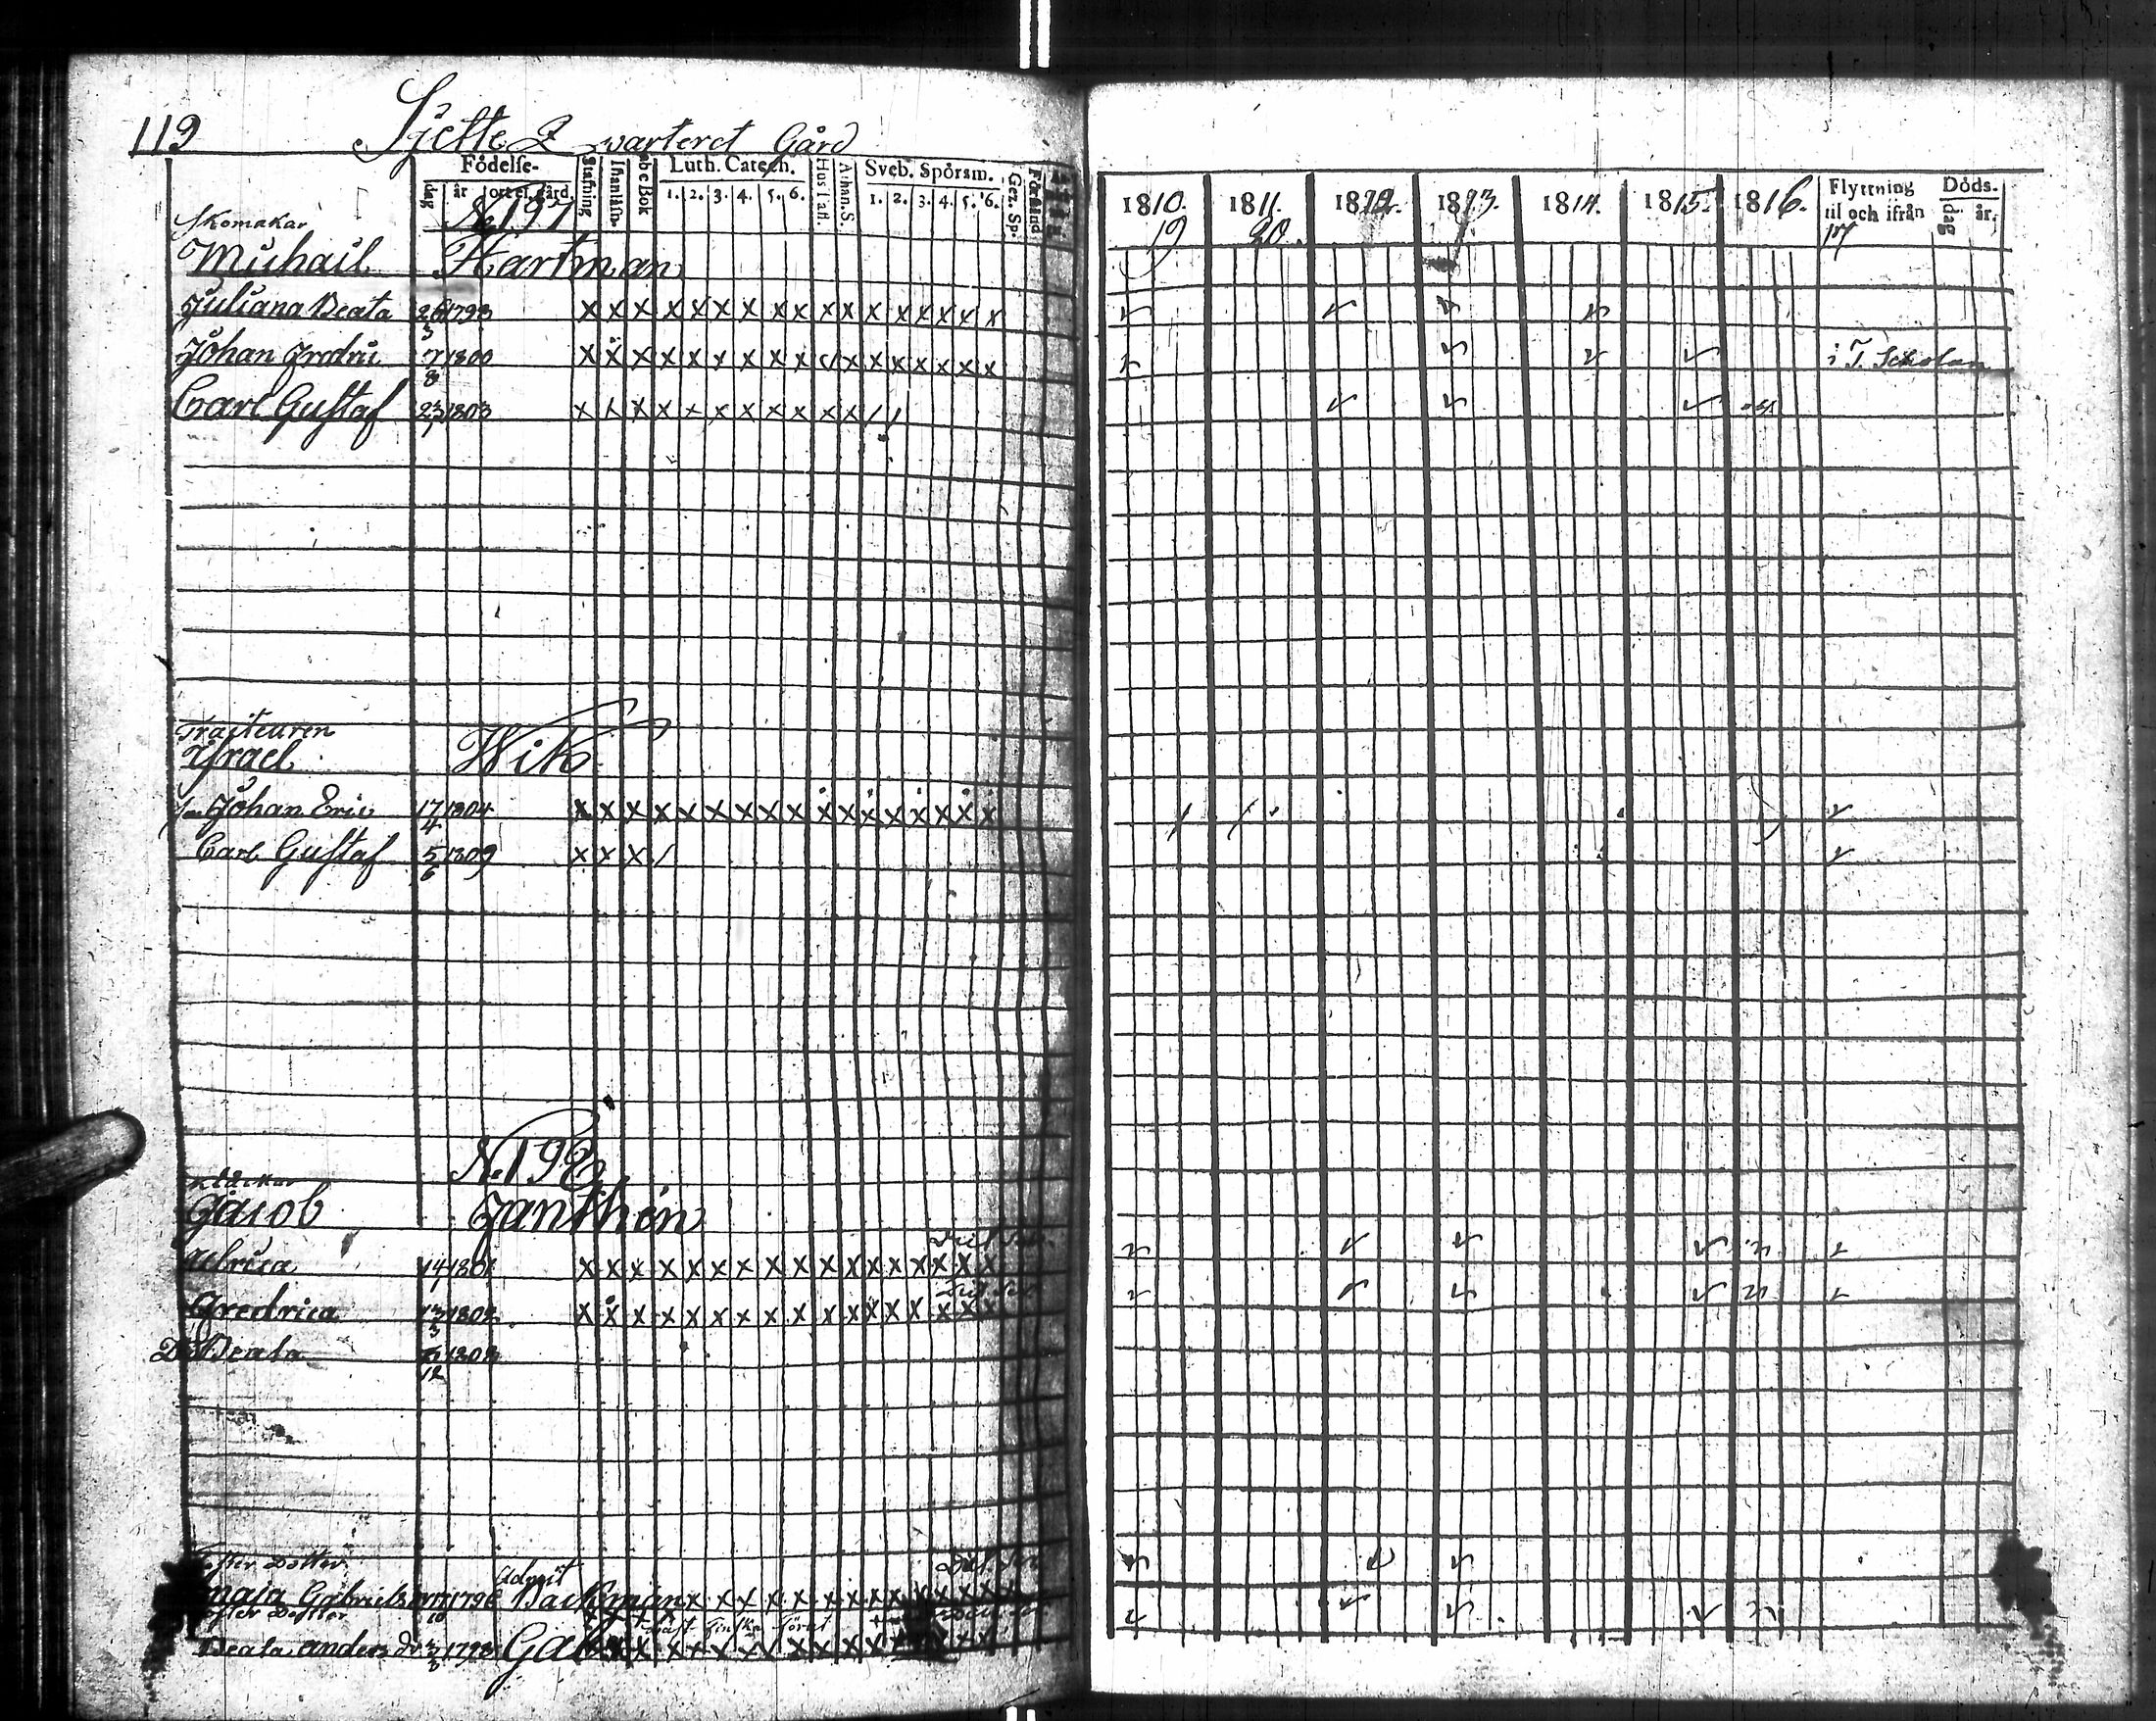 119 Sjette Qwarteret Gård
Födelse- Stafning Innanläsn. a b c Bok Luth. Catech. Hus Tafl. Athan. S. Sveb. Spörsm. Gez. Sp. Förstånd
dag år ort el. gård. 1. 2. 3. 4. 5. 6. 1. 2. 3. 4. 5. 6.
1810. 1811. 1812. 1813. 1814. 1815. 1816. Flyttning til och ifrån Döds- dag år.
19 20
Skomakar No 191
Michail Hartman
Juliana Beata 26/3 1793 x x x x x x x x x x x x x x x x
Johan Fredric 7/8 1800 x x x x x x x x x x x x x x x i T. Scholan
Carl Gustaf 23/1 1803 x x x x x x x x x x x / /
Traiteuren
Israel Wik
Johan Eric 17/4 1804 x x x x x x x x x x x x x x x x x
Carl Gustaf 5/6 1809 x x x /
No 192
Jacob Janthén
Ulrica 14/1 1801 x x x x x x x x x x x x x x x x x
Fredrica 13/3 1802 x x x x x x x x x x x x x x x x x
D Beata 12
Foster Dotter Admit
Maja Gabriels 10 Backman x x x x x x x x x x x x x
Foster Dotter
Beata anders dr 1793